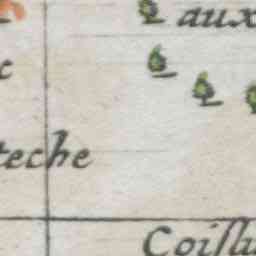 aux
c
teche
Coiſlu